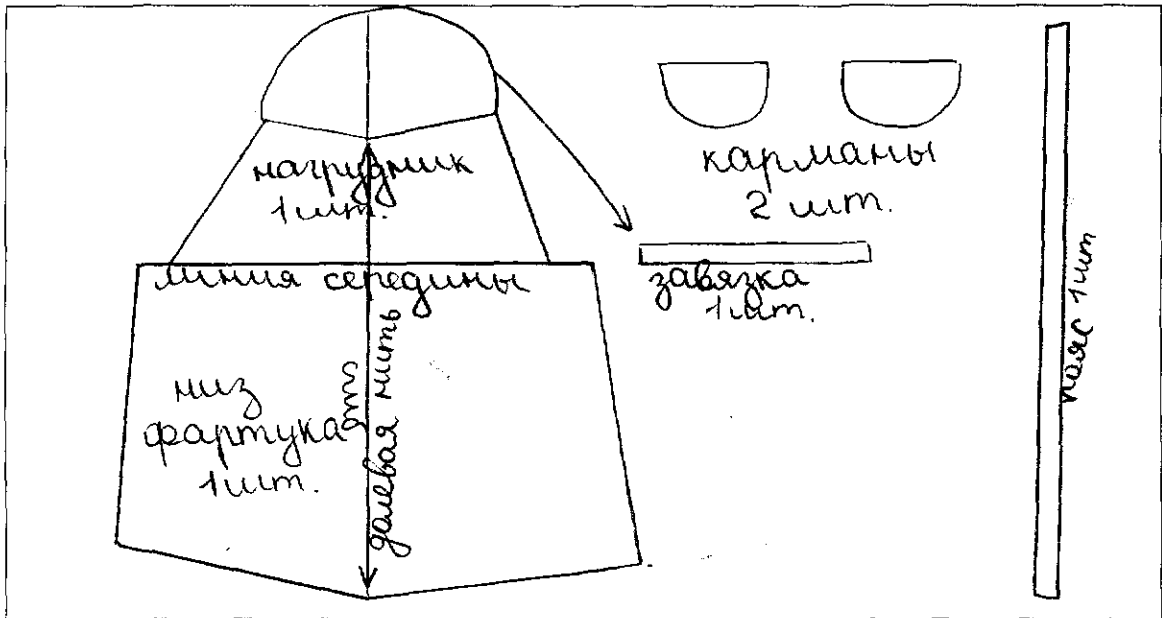 нагрудник
1 шт.
карманы
2 шт.
линия середины
завязка
1 шт.
низ
фартука
1 шт.
долевая нить
пояс 1 шт